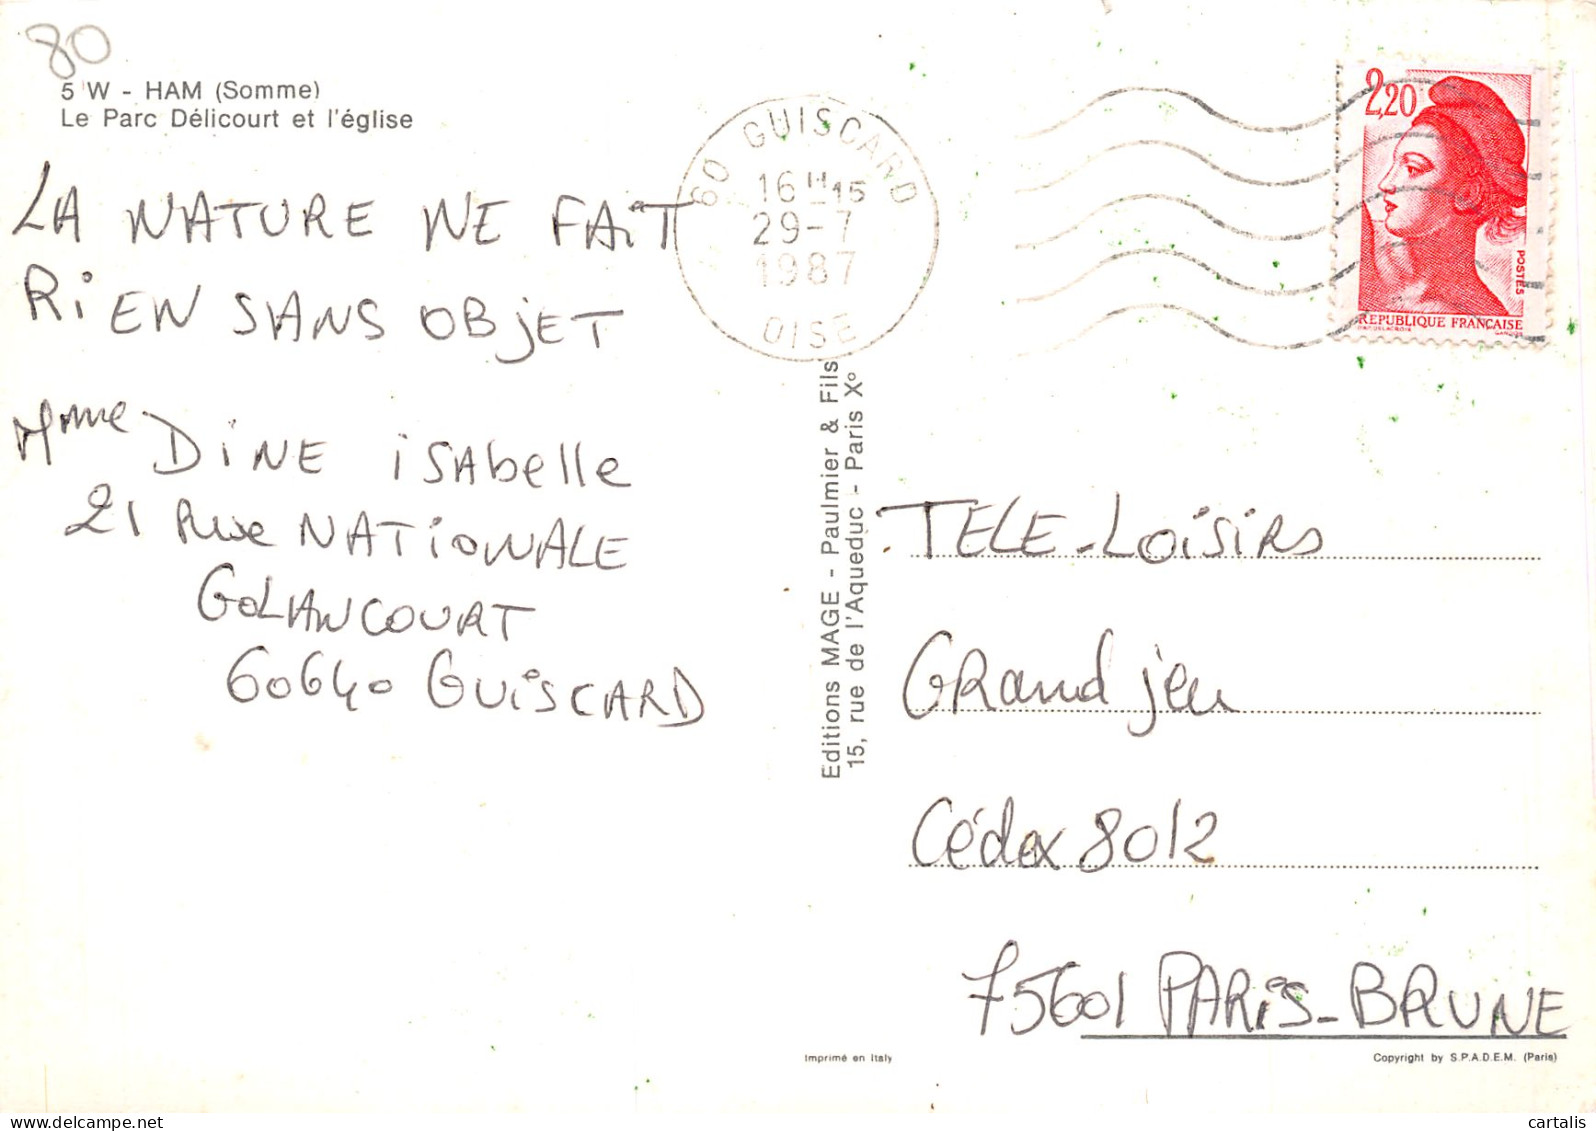 80
5 W - HAM (Somme)
Le Parc Délicourt et l'église
LA NATURE NE FAiT
RiEN SANS OBjET
Mme DiNE iSAbelle
21 Rue NATiONALE
GOLANCOURT
60640 GUiSCARD
60 GUISCARD
16H15
29-7
1987
OISE
2,20
POSTES
REPUBLIQUE FRANÇAISE
Editions MAGE - Paulmier & Fils
15, rue de l'Aqueduc - Paris X°
TELE-LOiSiRS
GRand jeu
Cédex 8012
75601 PARiS-BRUNE
Imprimé en Italy
Copyright by S.P.A.D.E.M. (Paris)
cartalis